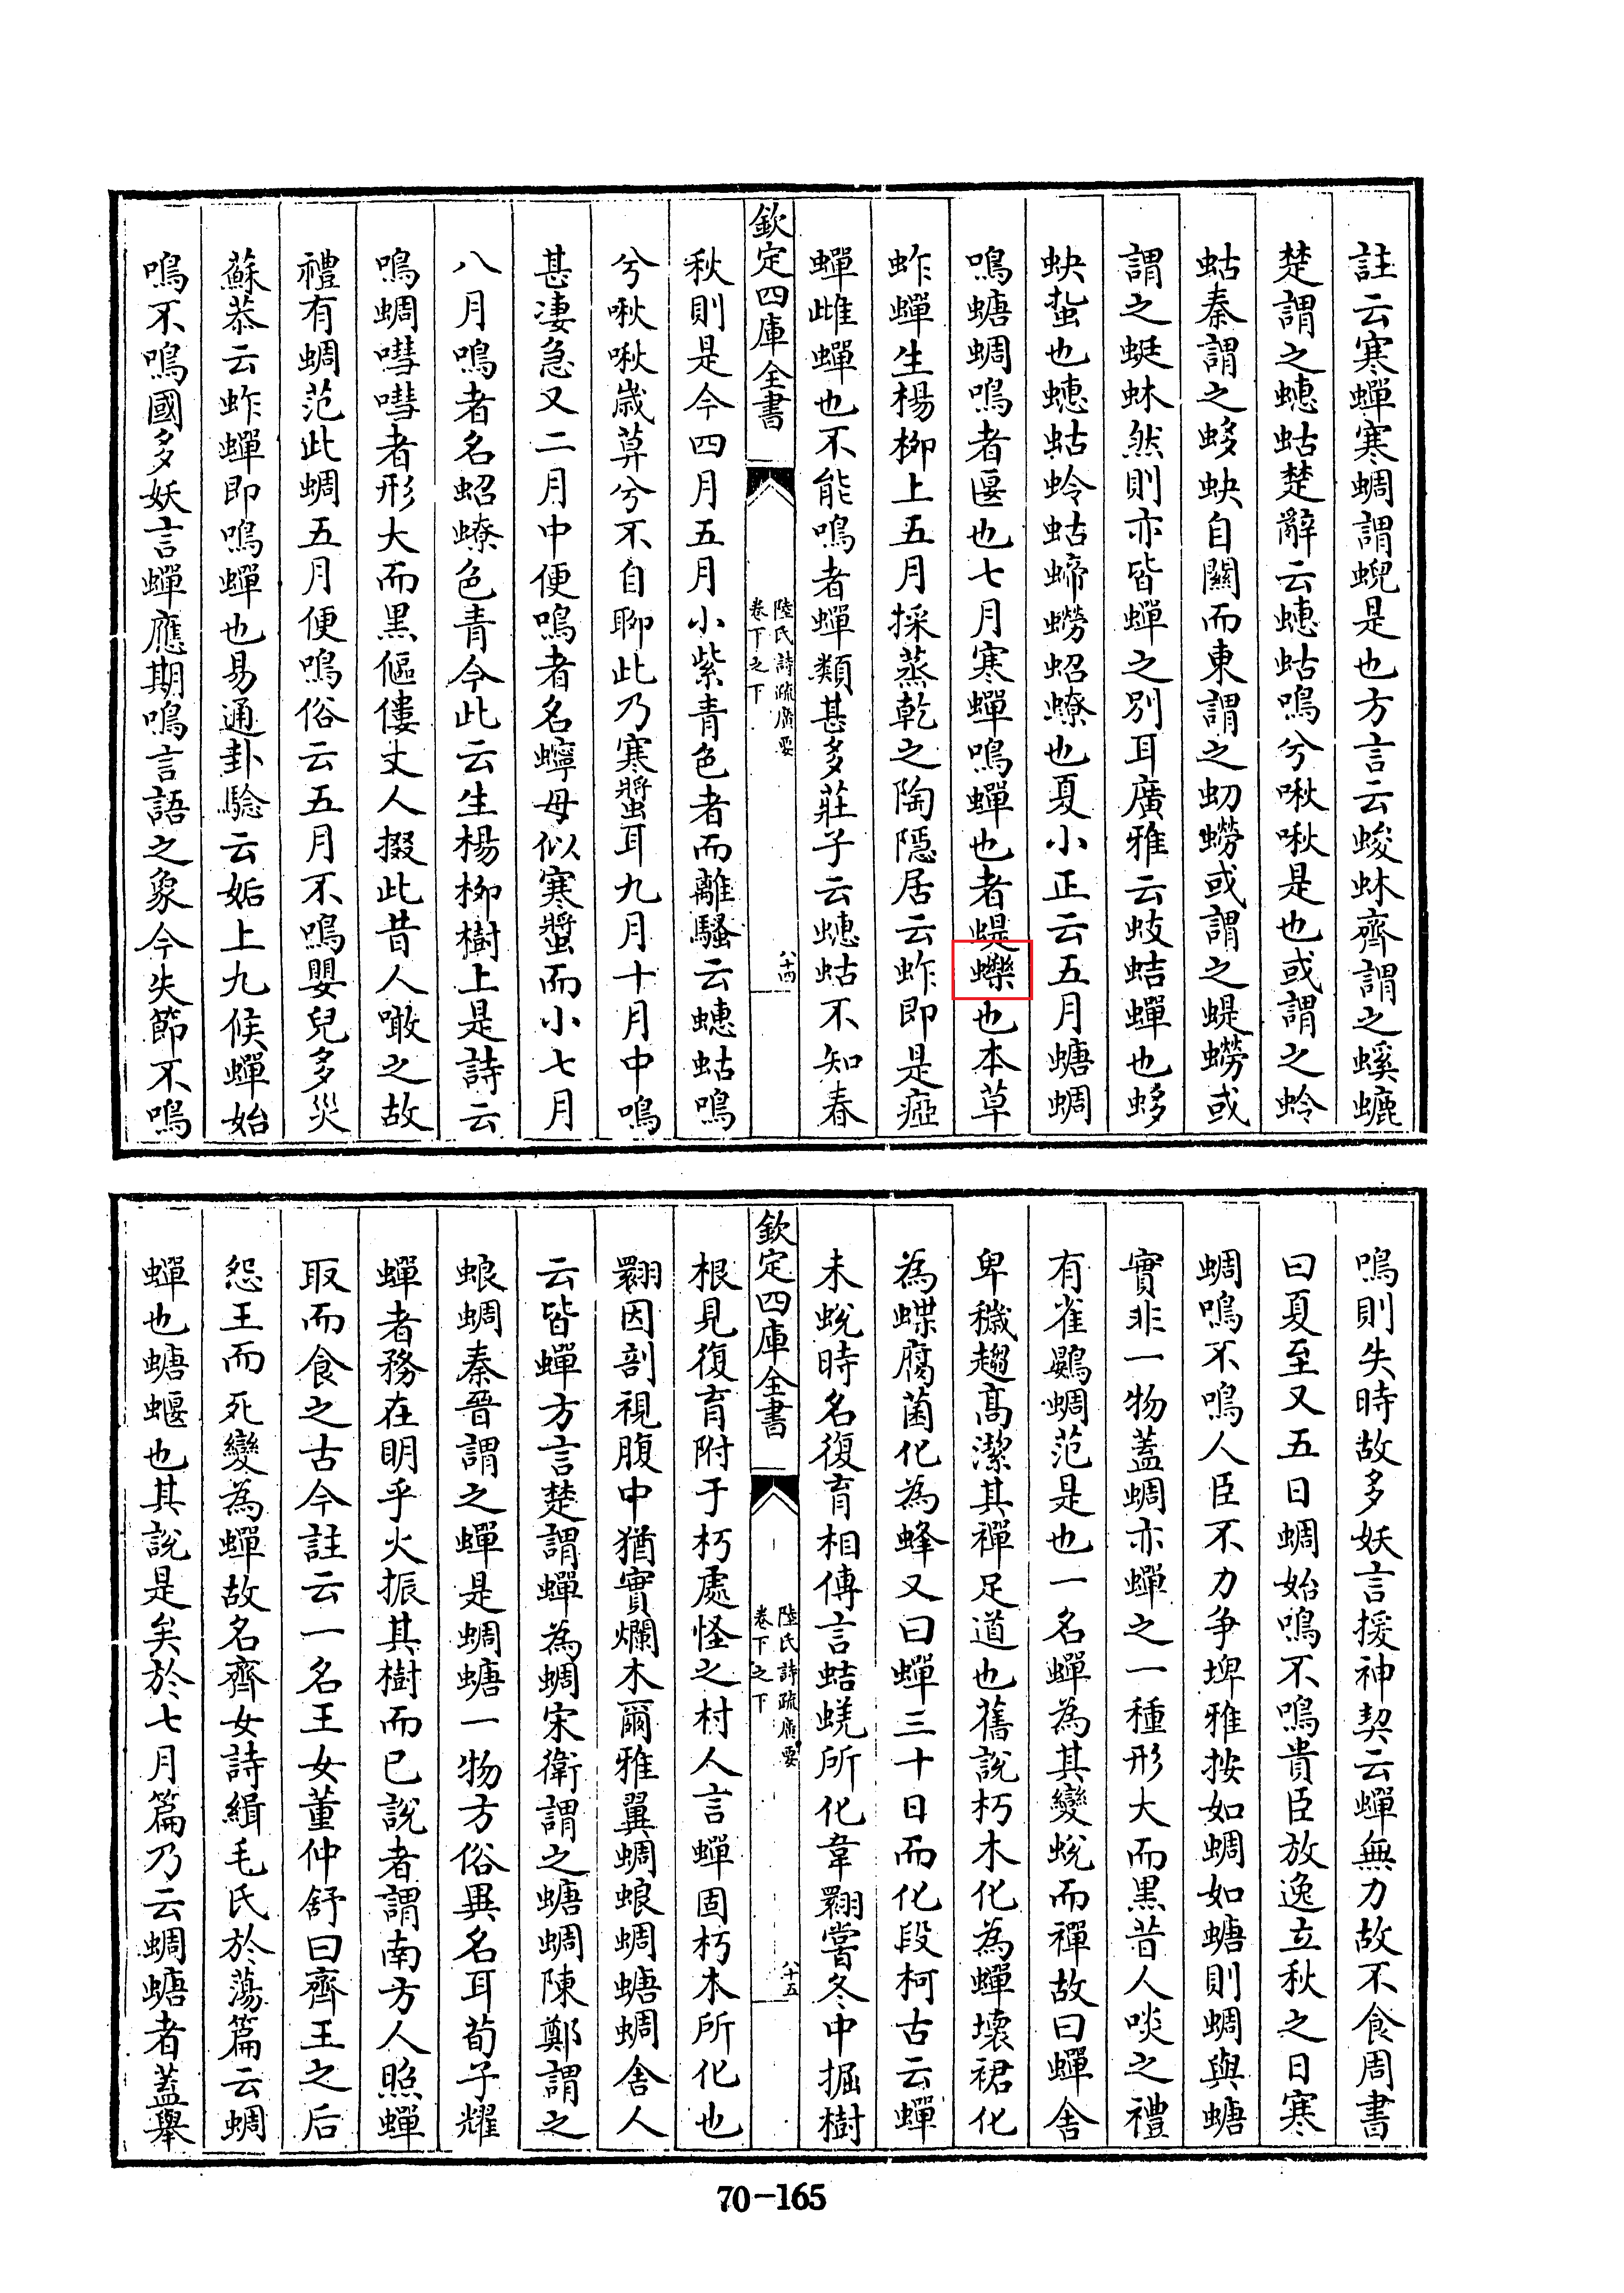 註云寒蟬寒蜩謂蜺是也方言云蛥蚗齊謂之螇螰
楚謂之蟪蛄楚辭云蟪蛄鳴兮啾啾是也或謂之蛉
蛄秦謂之蛥蚗自關而東謂之虭蟧或謂之蝭蟧或
謂之蜓蚞然則亦皆蟬之別耳廣雅云蚑蛣蟬也蛥
蚗蚻也蟪蛄蛉蛄蟧蛁蟟也夏小正云五月螗蜩
鳴螗蜩鳴者匽也七月寒蟬鳴蟬也者蝭蠑也本草
蚱蟬生楊柳上五月採蒸乾之陶隱居云蚱即是瘂
蟬雌蟬也不能鳴者蟬類甚多莊子云蟪蛄不知春
欽定四庫全書
陸氏詩疏廣要
卷下之下
八十四
秋則是今四月五月小紫青色者而離騷云蟪蛄鳴
兮啾啾歲莫兮不自聊此乃寒螿耳九月十月中鳴
甚淒急又二月中便鳴者名蟀母似寒螿而小七月
八月鳴者名蛁蟟色青今此云生楊柳樹上是詩云
鳴蜩嘒嘒者形大而黑傴僂丈人掇此昔人噉之故
禮有蜩范此蜩五月便鳴俗云五月不鳴嬰兒多災
蘇恭云蚱蟬即鳴蟬也易通卦驗云姤上九候蟬始
鳴不鳴國多妖言蟬應期鳴言語之象今失節不鳴
鳴則失時故多妖言援神契云蟬無力故不食周書
曰夏至又五日蜩始鳴不鳴貴臣放逸立秋之日寒
蜩鳴不鳴人臣不力爭埤雅按如蜩如螗則蜩與螗
實非一物蓋蜩亦蟬之一種形大而黑昔人啖之禮
有雀鷃蜩范是也一名蟬為其變蛻而禪故曰蟬舍
卑穢趨高潔其禪足道也舊說朽木化為蟬壞裙化
為蝶腐菌化為蜂又曰蟬三十日而化段柯古云蟬
未蛻時名復育相傳言蛣蜣所化韋翾嘗冬中掘樹
欽定四庫全書
陸氏詩疏廣要
卷下之下
八十五
根見復育附于朽處怪之村人言蟬固朽木所化也
翾因剖視腹中猶實爛木爾雅翼蜩蜋蜩螗蜩舍人
云皆蟬方言楚謂蟬為蜩宋衛謂之螗蜩陳鄭謂之
蜋蜩秦晉謂之蟬是蜩螗一物方俗異名耳荀子耀
蟬者務在明乎火振其樹而已說者謂南方人照蟬
取而食之古今註云一名王女董仲舒曰齊王之后
怨王而死變為蟬故名齊女詩緝毛氏於蕩篇云蜩
蟬也螗蝘也其說是矣於七月篇乃云蜩螗者蓋舉
70-165